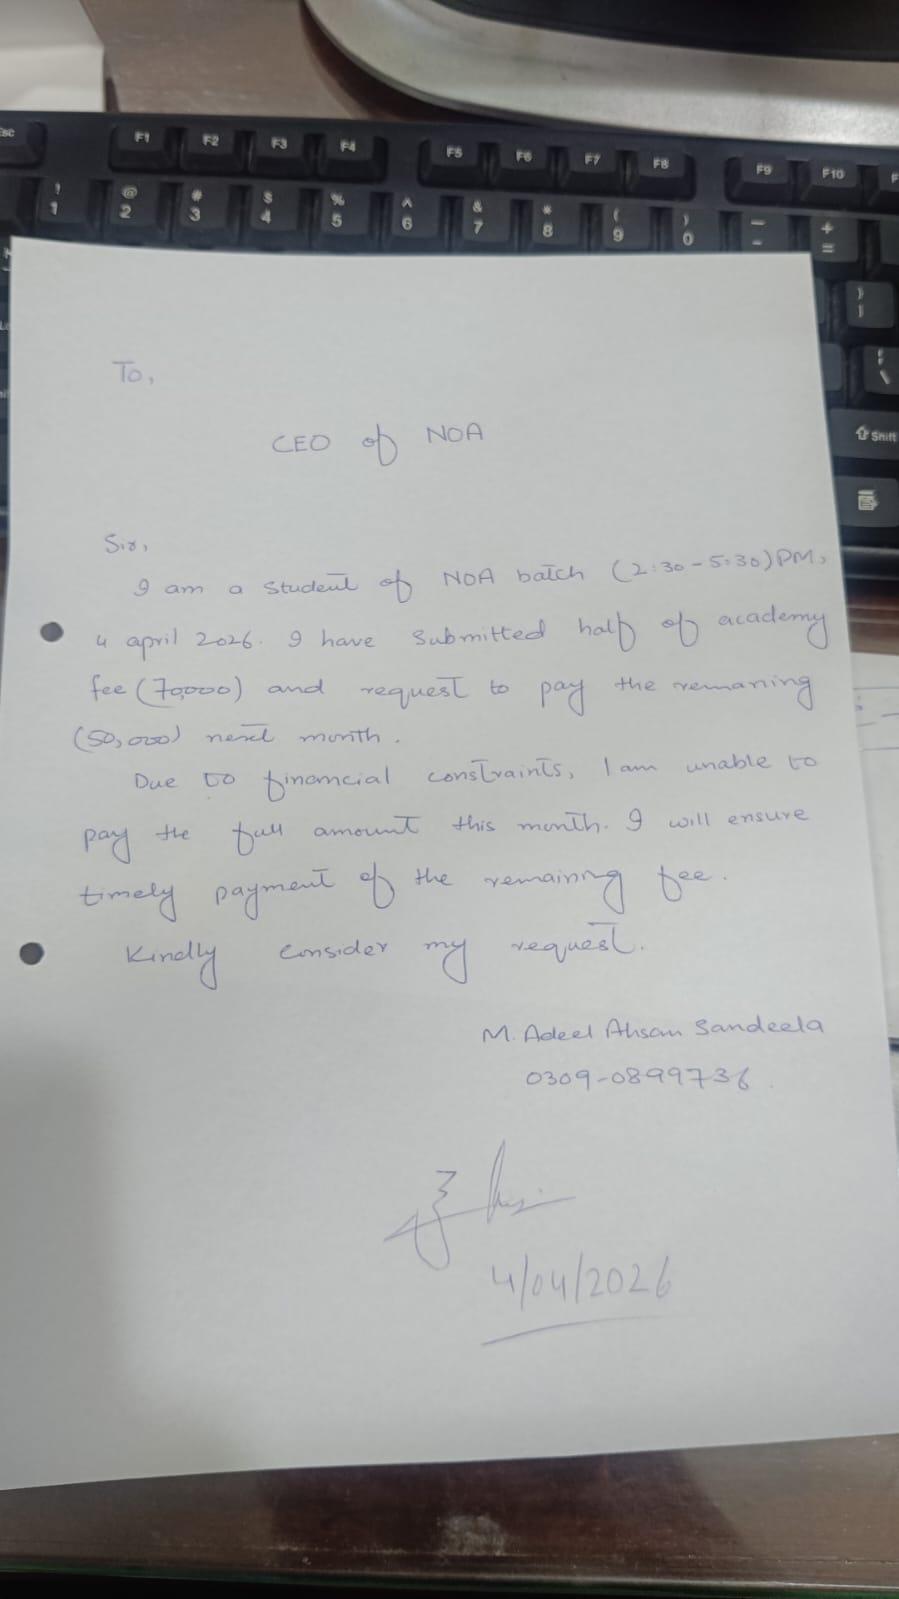 Esc F1 F2 F3 F4 F5 F6 F7 F8 F9 F10
! 1 @ 2 # 3 $ 4 % 5 ^ 6 & 7 * 8 ( 9 ) 0 - + =
Shift
To,
CEO of NOA
Sir,
I am a student of NOA batch (2:30-5:30)PM,
4 april 2026. I have submitted half of academy
fee (70,000) and request to pay the remaning
(50,000) next month.
Due to financial constraints, I am unable to
pay the full amount this month. I will ensure
timely payment of the remaining fee.
Kindly consider my request.
M. Adeel Ahsan Sandeela
0309-0899736
4/04/2026